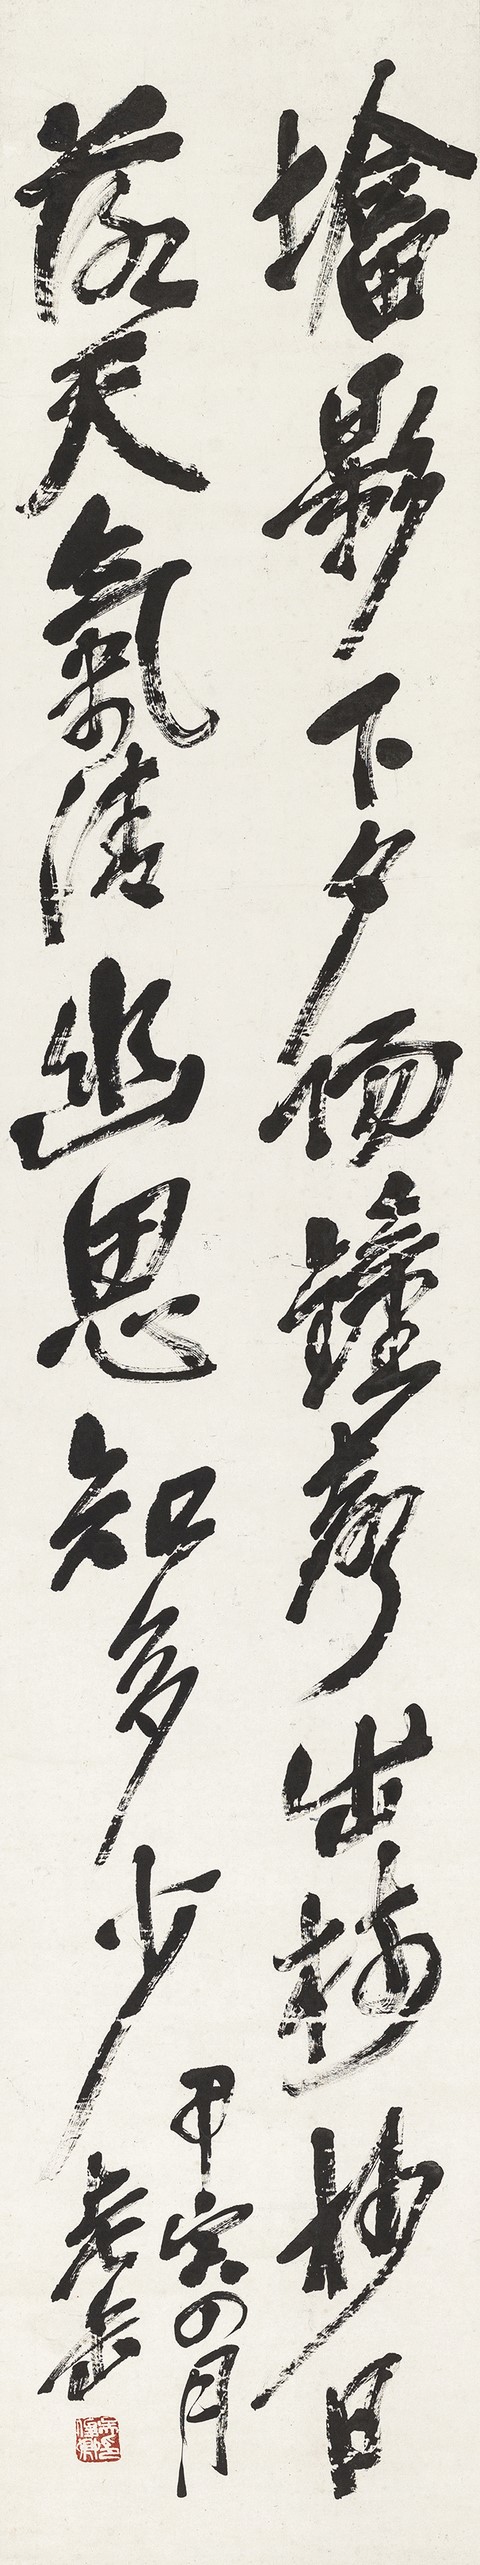 墻影下夕陽鐘聲出樹杪日
落天氣清幽思知多少
甲寅四月
老缶